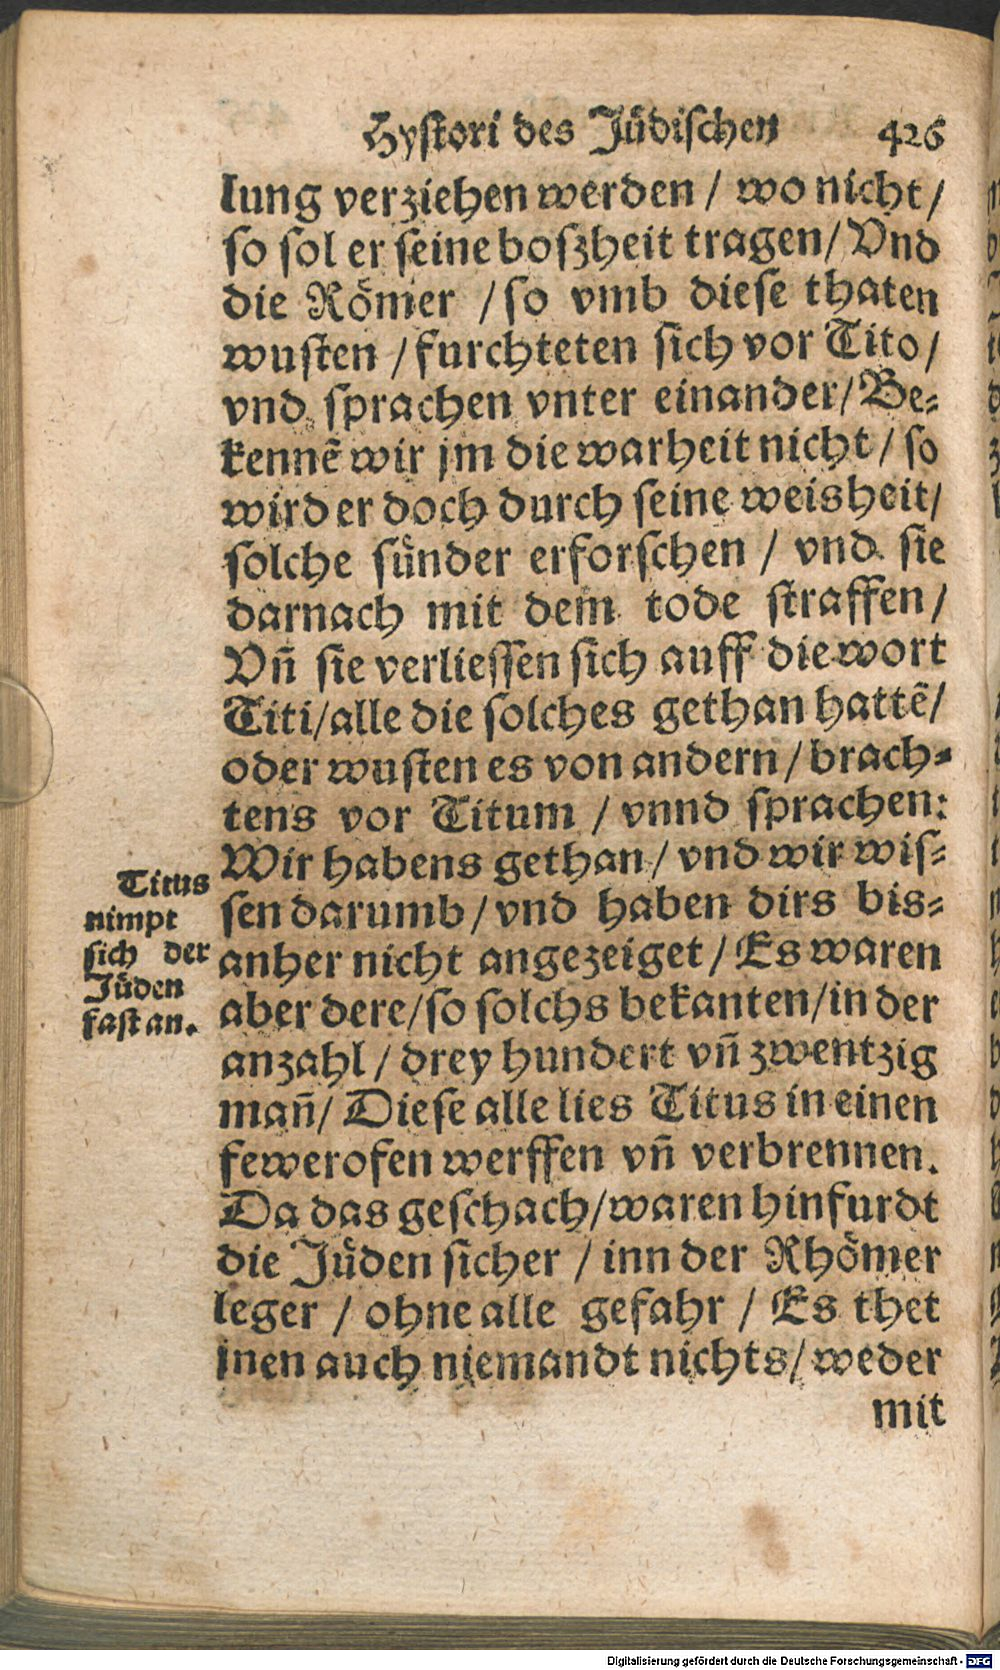 Hystori des Jüdischen 426
lung verziehen werden / wo nicht /
so sol er seine boszheit tragen / Vnd
die Römer / so vmb diese thaten
wusten / furchteten sich vor Tito /
vnd sprachen vnter einander / Be-
kennẽ wir jm die warheit nicht / so
wird er doch durch seine weisheit /
solche sünder erforschen / vnd sie
darnach mit dem tode straffen /
Vñ sie verliessen sich auff die wort
Titi / alle die solches gethan hattẽ /
oder wusten es von andern / brach-
tens vor Titum / vnnd sprachen:
Wir habens gethan / vnd wir wis-
sen darumb / vnd haben dirs bis-
anher nicht angezeiget / Es waren
aber dere / so solchs bekanten / in der
anzahl / drey hundert vñ zwentzig
mañ / Diese alle lies Titus in einen
fewerofen werffen vñ verbrennen.
Da das geschach / waren hinfurdt
die Jüden sicher / inn der Rhömer
leger / ohne alle gefahr / Es thet
jnen auch niemandt nichts / weder
mit
Titus
nimpt
sich der
Jüden
fast an.
Digitalisierung gefördert durch die Deutsche Forschungsgemeinschaft - DFG